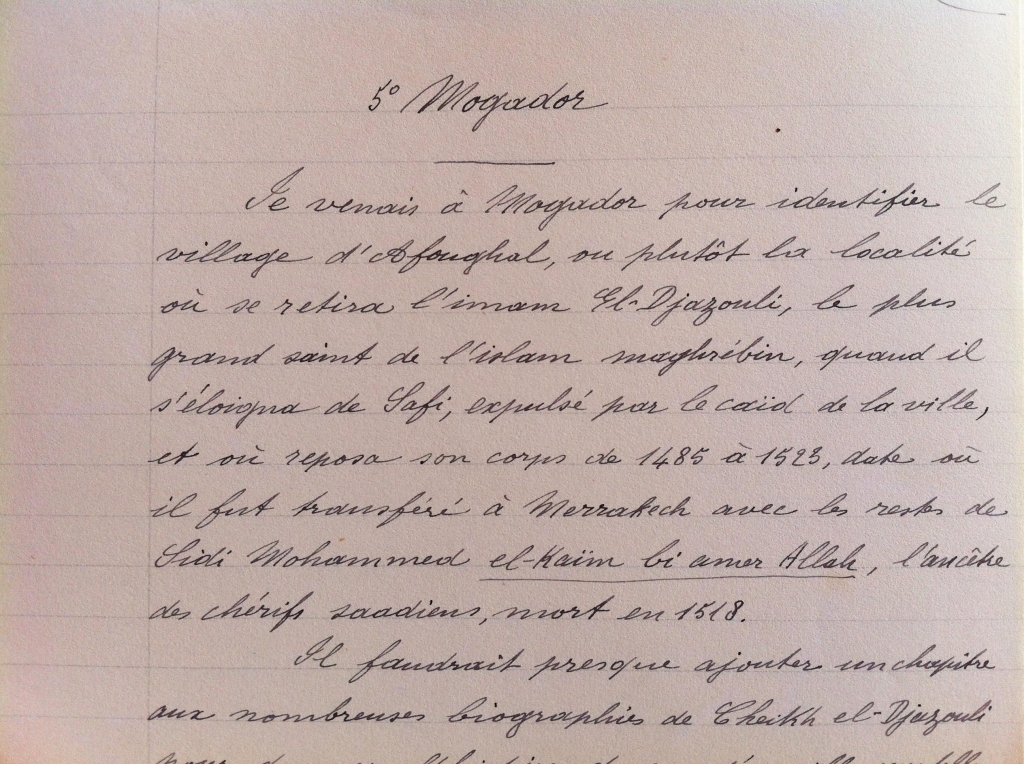 5° Mogador
Je venais à Mogador pour identifier le
village d'Afoughal, ou plutôt la localité
où se retira l'imam El-Djazouli, le plus
grand saint de l'islam maghrébin, quand il
s'éloigna de Safi, expulsé par le caïd de la ville,
et où reposa son corps de 1485 à 1523, date où
il fut transféré à Merrakech avec les restes de
Sidi Mohammed el-Kaïm bi amer Allah, l'ancêtre
des chérifs saadiens, mort en 1518.
Il faudrait presque ajouter un chapitre
aux nombreuses biographies de Cheikh el-Djazouli